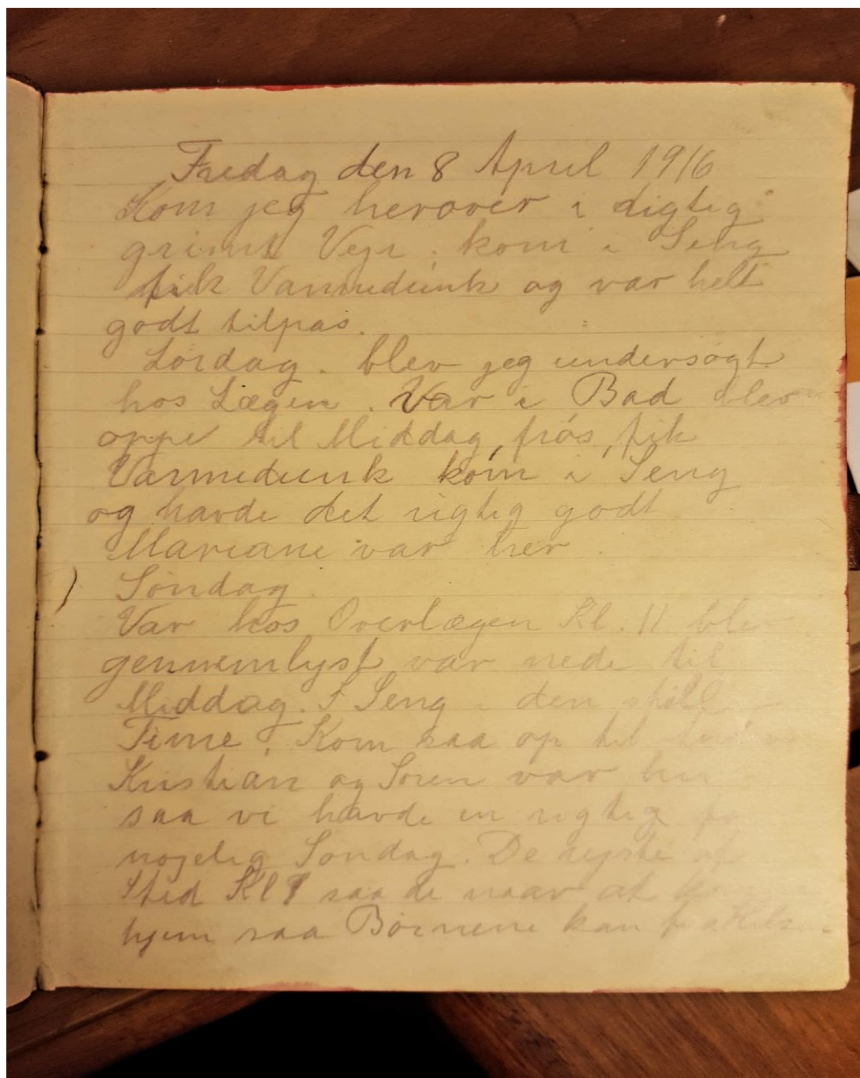 Fredag den 8 April 1916
Kom jeg herover i digtig
grimt Vejr. kom i Seng
fik Varmedunk og var helt
godt tilpas.
Lørdag. blev jeg undersøgt
hos Lægen. Var i Bad blev
oppe til Middag, frøs, fik
Varmedunk kom i Seng
og havde det rigtig godt
Mariane var her.
Søndag
Var hos Overlægen Kl. 11 blev
gennemlyst var nede til
Middag. I Seng i den
Time. Kom saa op til
Kristian og Søren var her
saa vi havde en rigtig
nøjelig Søndag. De rejste af
Sted Kl saa de naar at
hjem saa Børnene kan